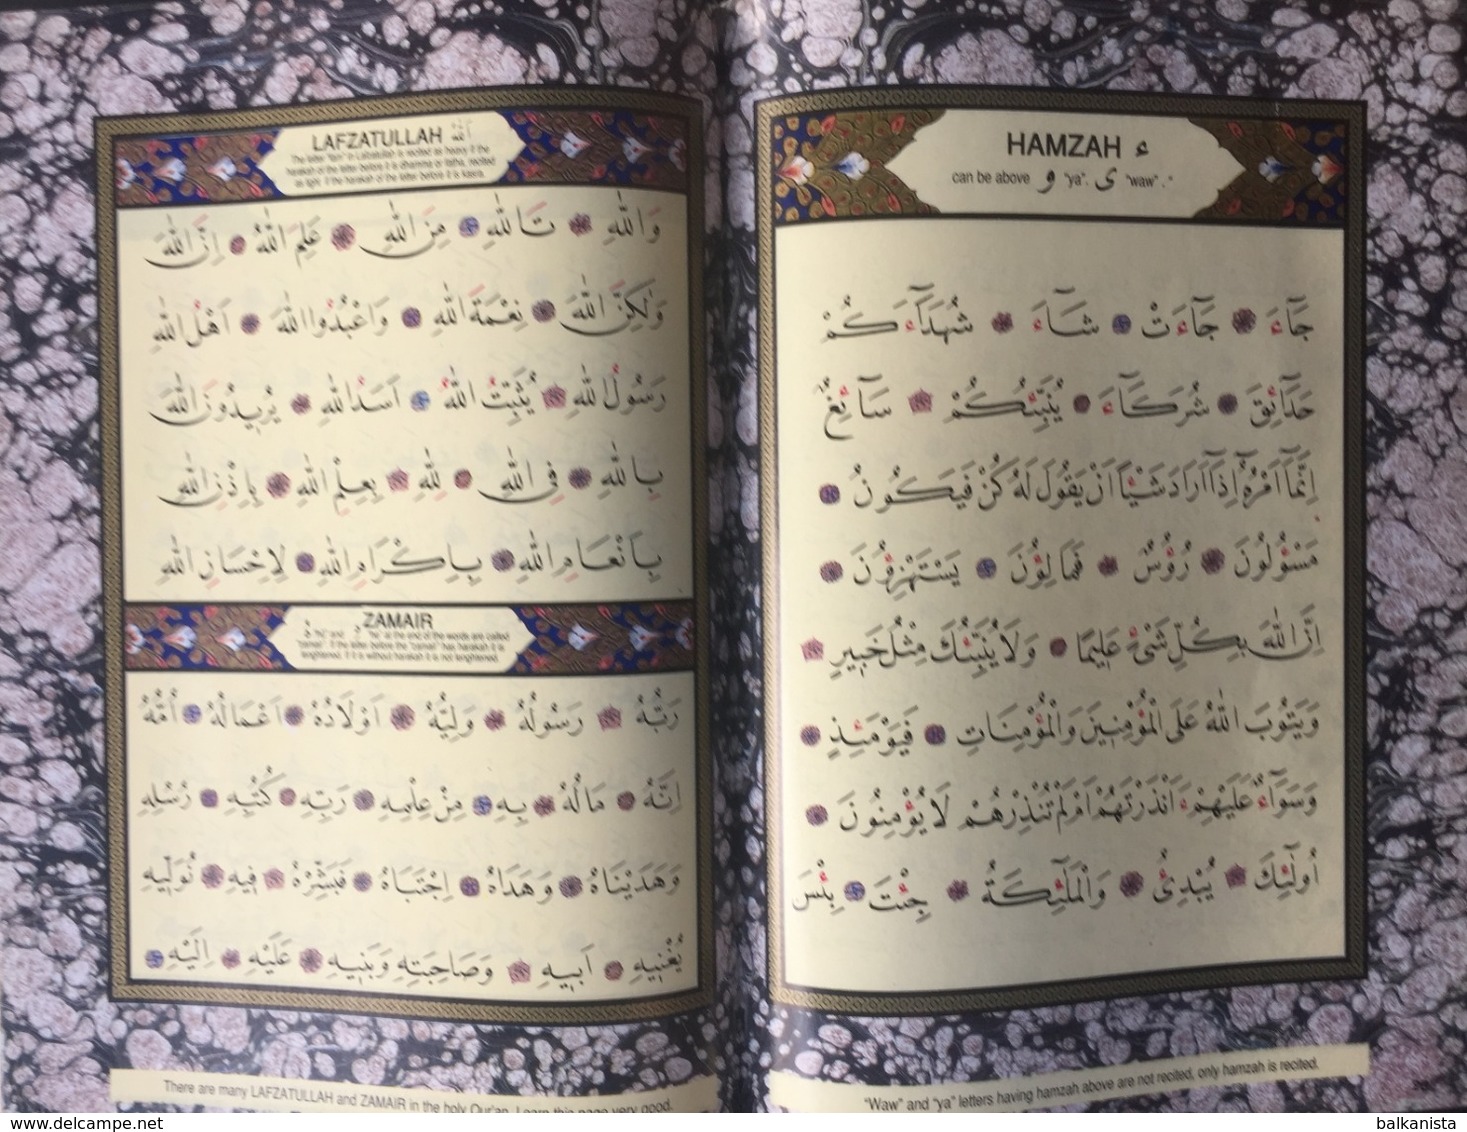 HAMZAH ء
can be above و "ya". ى "waw" . "
جَٓاءَ جَٓاءَتْ شَٓاءَ شُهَدَٓاءَكُمْ
حَدَٓائِقَ شُرَكَٓاءَ يُنَبِّئُكُمْ سَٓائِغٌ
اِنَّمَٓا اَمْرُهُٓ اِذَٓا اَرَادَ شَيْـًٔا اَنْ يَقُولَ لَهُ كُنْ فَيَكُونُ
مَسْؤُلُونَ رُؤُسُ فَمَالِؤُنَ يَسْتَهْزِؤُنَ
اِنَّ اللّٰهَ بِكُلِّ شَىْءٍ عَلِيمًا وَلَا يُنَبِّئُكَ مِثْلُ خَبِيرٍ
وَيَتُوبَ اللّٰهُ عَلَى الْمُؤْمِنِينَ وَالْمُؤْمِنَاتِ فَيَوْمَئِذٍ
وَسَوَٓاءٌ عَلَيْهِمْ ءَاَنْذَرْتَهُمْ اَمْ لَمْ تُنْذِرْهُمْ لَا يُؤْمِنُونَ
اُولٰٓئِكَ يُبْدِئُ وَالْمَلٰٓئِكَةُ جِئْتَ بِئْسَ
"Waw" and "ya" letters having hamzah above are not recited, only hamzah is recited.
LAFZATULLAH اَللّٰهُ
The letter "lam" in Lafzatullah is recited as heavy if the
harakah of the letter before it is dhamma or fatha, recited
as light if the harakah of the letter before it is kasra.
وَاللّٰهِ تَاللّٰهِ مِنَ اللّٰهِ عَلِمَ اللّٰهُ اِنَّ اللّٰهَ
وَلٰكِنَّ اللّٰهَ نِعْمَةَ اللّٰهِ وَاعْبُدُوا اللّٰهَ اَهْلُ اللّٰهِ
رَسُولُ اللّٰهِ يُثَبِّتُ اللّٰهُ اَسَدُ اللّٰهِ يُرِيدُونَ اللّٰهَ
بِاللّٰهِ فِى اللّٰهِ لِلّٰهِ بِعِلْمِ اللّٰهِ بِاِذْنِ اللّٰهِ
بِاَنْعَامِ اللّٰهِ بِاِكْرَامِ اللّٰهِ لِاِحْسَانِ اللّٰهِ
ZAMAIR
"hu" and "he" at the end of the words are called
"zamair". If the letter before the "zamair" has harakah it is
lenghtened, if it is without harakah it is not lenghtened.
رَبُّهُ رَسُولُهُ وَلِيُّهُ اَوْلَادُهُ اَعْمَالُهُ اُمُّهُ
اِنَّهُ مَالُهُ بِهِ مِنْ عِلْمِهِ رَبِّهِ كُتُبِهِ رُسُلِهِ
وَهَدَيْنَاهُ وَهَدَاهُ اِجْتَبَاهُ فَبَشِّرْهُ فِيهِ نُوَلِّيهِ
يُغْنِيهِ اَبِيهِ وَصَاحِبَتِهِ وَبَنِيهِ عَلَيْهِ اِلَيْهِ
There are many LAFZATULLAH and ZAMAIR in the holy Qur'an. Learn this page very good.
balkanista